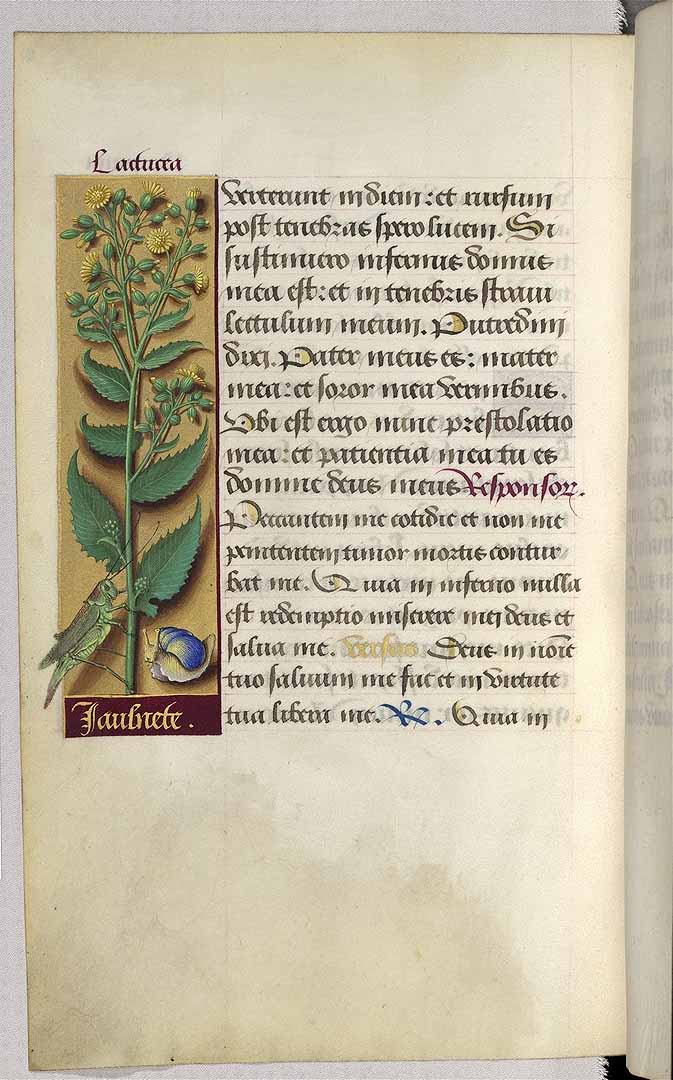 Lactucea
verterunt in diem: et rursum
post tenebras spero lucem. Si
sustinuero infernus domus
mea est: et in tenebris straui
lectulum meum. Putredini
dixi. Pater meus es: mater
mea: et soror mea vermibus.
Vbi est ergo nunc prestolatio
mea: et patientia mea tu es
domine deus meus Responsor.
Peccantem me cotidie et non me
penitentem timor mortis contur
bat me. Quia in inferno nulla
est redemptio miserere mei deus et
salua me. Versus. Deus in noīe
tuo saluum me fac et in virtute
tua libera me. R. Quia in
Jaulnete.